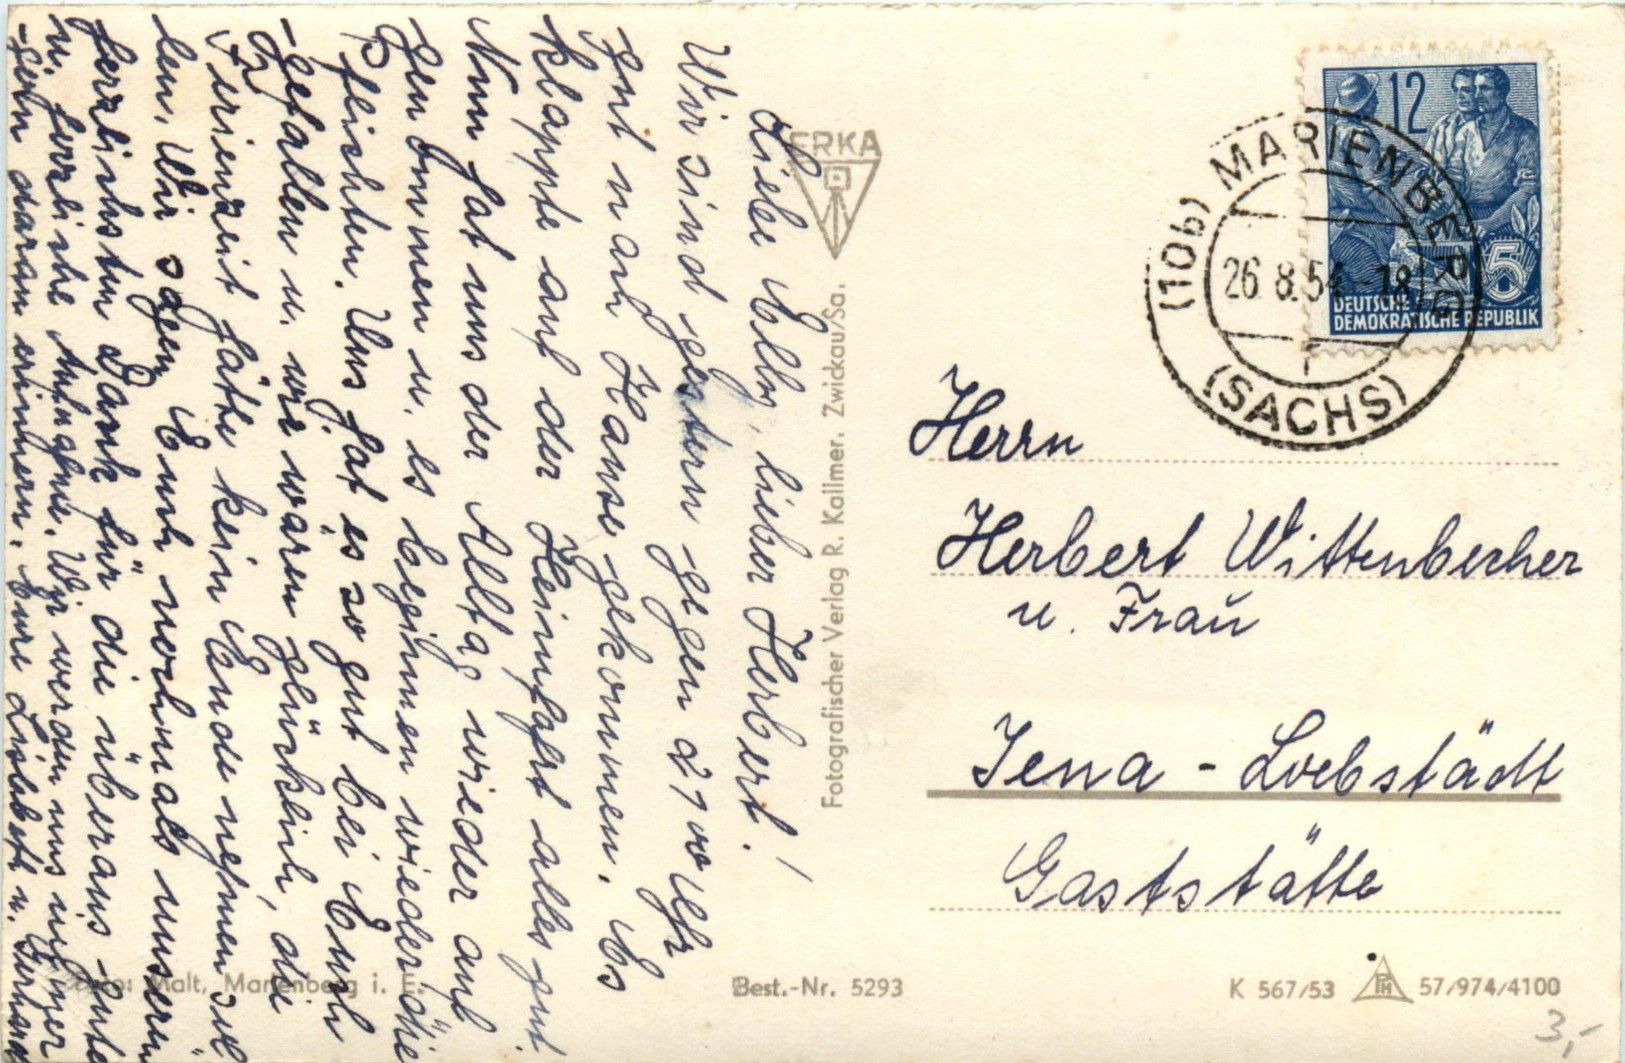 Liebe Elly, lieber Herbert!
Wir sind gestern gegen 21 00 Uhr
gut nach Hause gekommen. Es
klappte auf der Heimfahrt alles gut
Nun hat uns der Alltag wieder auf-
genommen u. es beginnen wieder die
Pflichten. Uns hat es so gut bei Euch
gefallen u. wir wären glücklich, die
Ferienzeit hätte kein Ende nehmen sol-
len. Wir sagen Euch nochmals unseren
herzlichsten Dank für die überaus gute
u. herzliche Aufnahme. Wir werden uns immer
gern daran erinnern. Eure Lisbeth u. Gerhard
ERKA
Fotografischer Verlag R. Kallmer, Zwickau/Sa.
Foto: Malt, Marienberg i. E.
Best.-Nr. 5293
12
5
DEUTSCHE
DEMOKRATISCHE REPUBLIK
(10b) MARIENBERG
26.8.54.-18
(SACHS)
Herrn
Herbert Wittenbecher
u. Frau
Jena - Loebstädt
Gaststätte
K 567/53 PH 57/974/4100
3,-